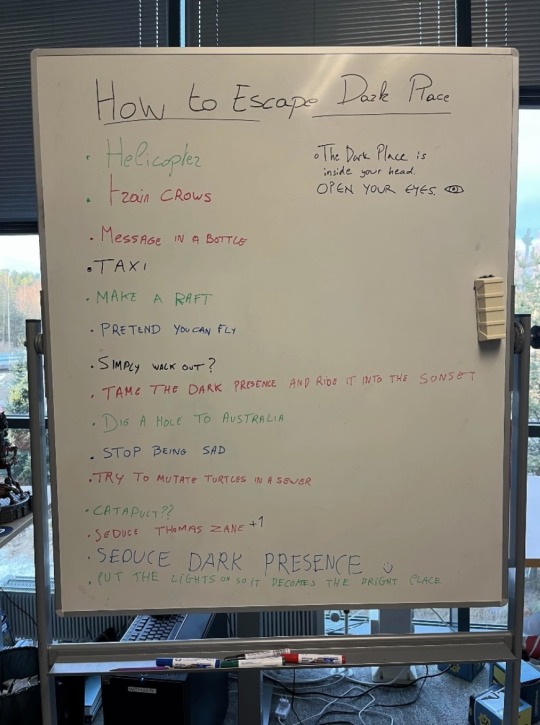 How to Escape Dark Place
• Helicopter
• train CROWS
• MESSAGE IN A BOTTLE
• TAXI
• MAKE A RAFT
• PRETEND YOU CAN FLY
• SIMPLY WALK OUT?
• TAME THE DARK PRESENCE AND RIDE IT INTO THE SUNSET
• DIG A HOLE TO AUSTRALIA
• STOP BEING SAD
• TRY TO MUTATE TURTLES IN A SEWER
• CATAPULT??
• SEDUCE THOMAS ZANE +1
• SEDUCE DARK PRESENCE
• PUT THE LIGHTS ON SO IT BECOMES THE BRIGHT PLACE
• The Dark Place is
inside your head.
OPEN YOUR EYES.